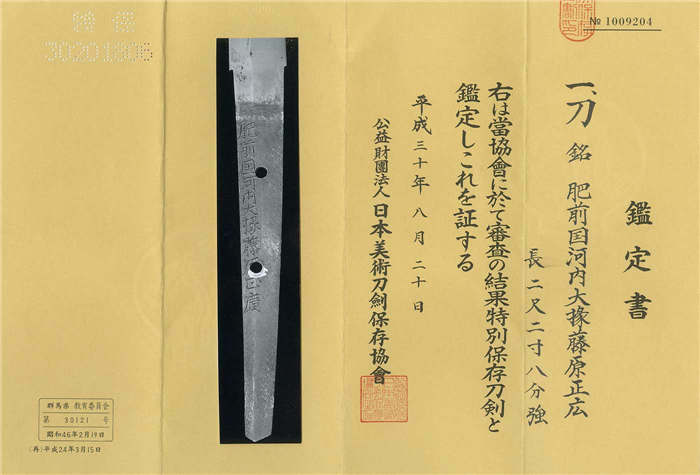 № 1009204
鑑定書
一、刀 銘 肥前国河内大掾藤原正広
長二尺二寸八分強
右は當協會に於て審査の結果特別保存刀剣と
鑑定しこれを証する
平成三十年八月二十日
公益財團法人 日本美術刀劍保存協會
肥前国河内大掾藤原正廣
特保
30201806
群馬県 教育委員会
第 30121 号
昭和46年2月19日
(再)平成24年3月15日